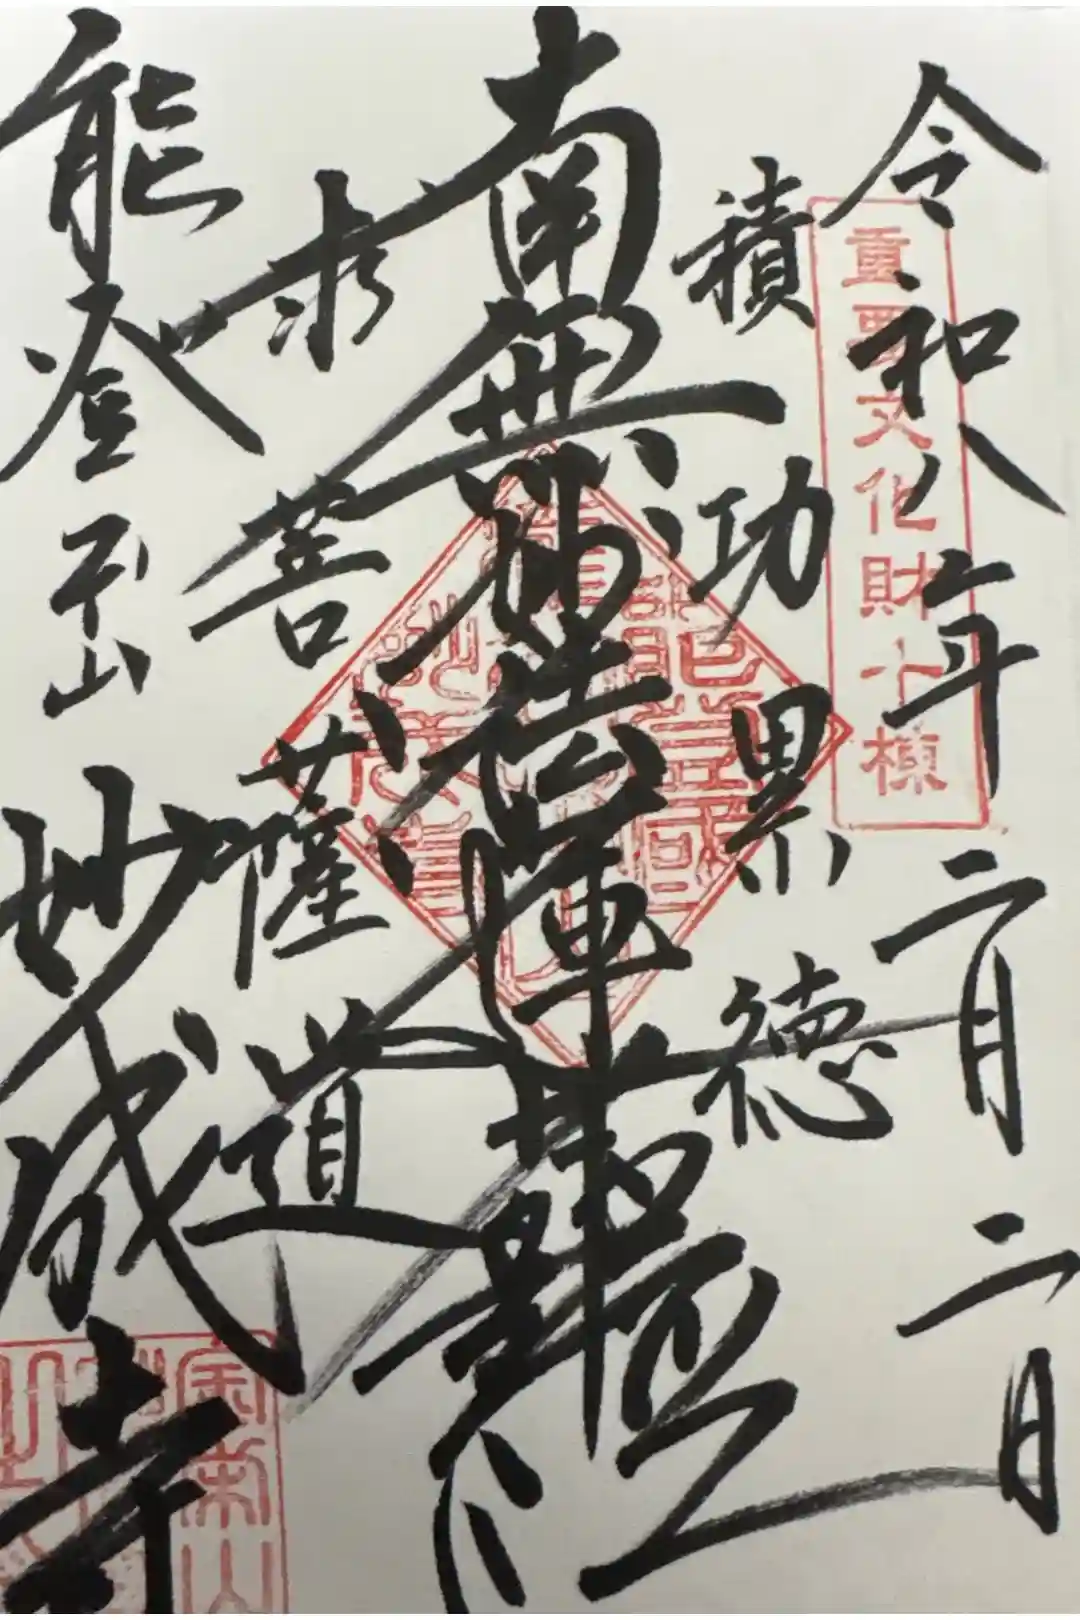 令和八年二月二日
重要文化財十棟
積功累徳
南無妙法蓮華経
求菩薩道
能登本山
妙成寺